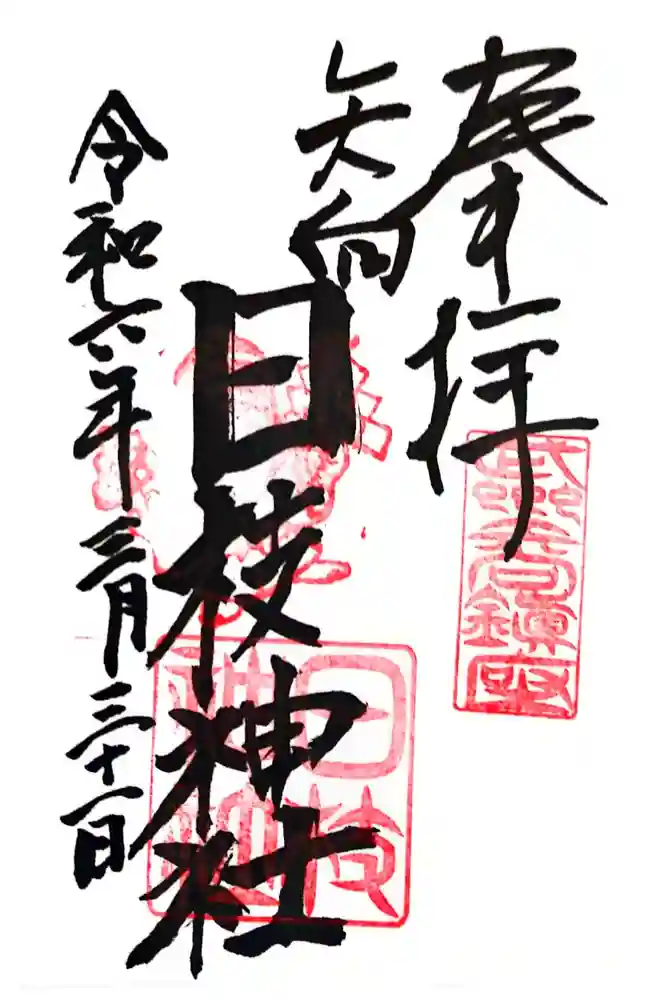 奉拝
武州矢向鎮座
矢向
日枝神社
日枝神社
令和六年三月三十一日